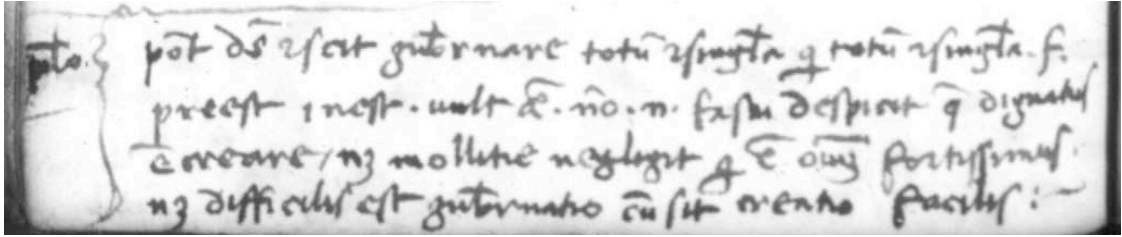 plo. pot ds ⁊ scit gubrnare totū ⁊ singla q totū ⁊ singla . s.
preest inest . vult . no . n . fastu despicit q dignatus
ē creare / nꝫ mollitie negligit q ē oīuꝫ fortissimus.
nꝫ difficilis est gubrnatio cū sit creatio facilis :~